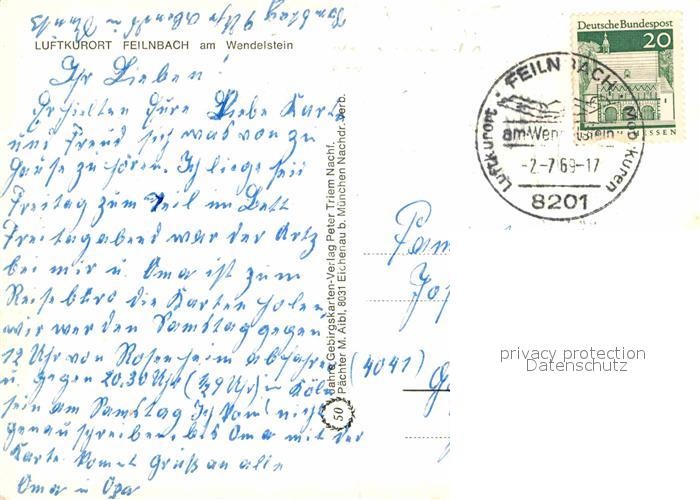 LUFTKURORT FEILNBACH am Wendelstein
Ihr Lieben!
Erhielten Eure Liebe Karte
uns Freud sich was von zu
Hause zu hören. Ich liege seit
Freitag zum Teil im Bett
Freitagabend war der Artz
bei mir u. Oma ist zum
Reisebüro die Karten holen,
wir werden Samstag gegen
12 Uhr von Rosenheim abfahren
u. gegen 20.30 Uhr (1/29 Uhr) in Köln
sein am Samstag Ich kann nicht
genau schreiben bis Oma mit der
Karte kommt Gruß an alle
Oma u Opa
50 Jahre Gebirgskarten-Verlag Peter Triem Nachf.
Pächter M. Aibl, 8031 Eichenau b. München Nachdr. verb.
Deutsche Bundespost
20
ESSEN
Luftkurort · FEILNBACH · Moorkuren
am Wendelstein
-2.-7.69-17
8201
Fam
Jos
(4041)
privacy protection
Datenschutz